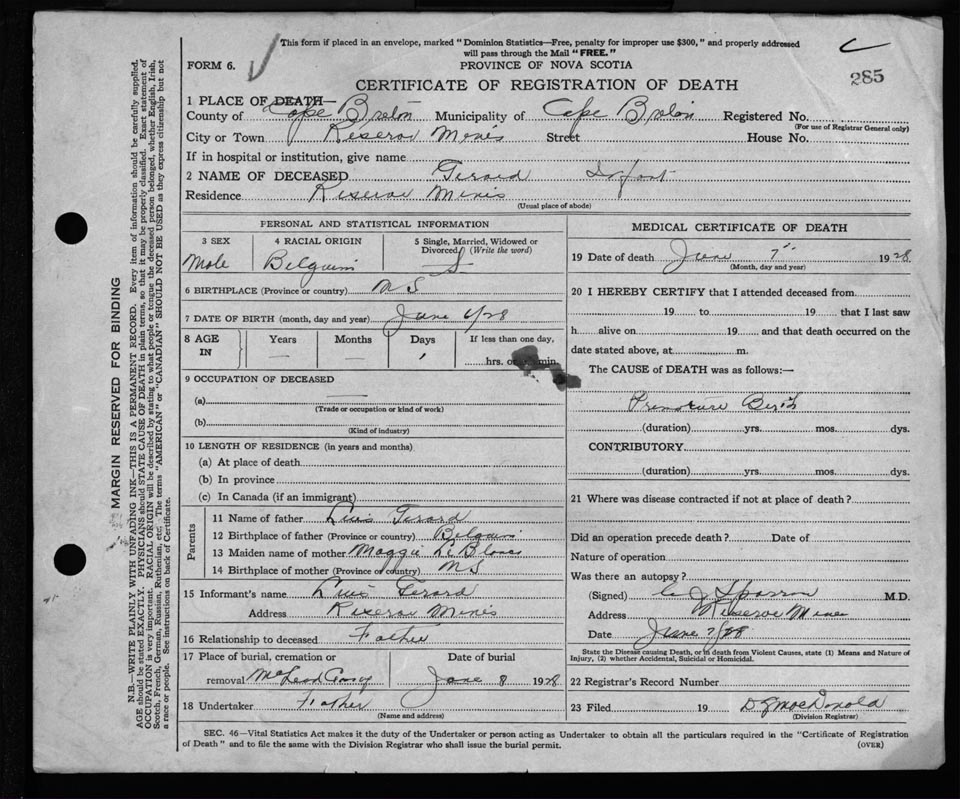 This form if placed in an envelope, marked "Dominion Statistics—Free, penalty for improper use $300," and properly addressed
will pass through the Mail "FREE."
FORM 6.
PROVINCE OF NOVA SCOTIA
CERTIFICATE OF REGISTRATION OF DEATH
285
1 PLACE OF DEATH—
County of Cape Breton Municipality of Cape Breton Registered No.
(For use of Registrar General only)
City or Town Reserve Mines Street House No.
If in hospital or institution, give name
2 NAME OF DECEASED Gerard Infant
Residence Reserve Mines
(Usual place of abode)
PERSONAL AND STATISTICAL INFORMATION
3 SEX 4 RACIAL ORIGIN 5 Single, Married, Widowed or Divorced (Write the word)
Male Belguim S
6 BIRTHPLACE (Province or country) NS
7 DATE OF BIRTH (month, day and year) June 6/28
8 AGE IN Years Months Days If less than one day,
— — 1 hrs. or min.
9 OCCUPATION OF DECEASED
(a) —
(Trade or occupation or kind of work)
(b)
(Kind of industry)
10 LENGTH OF RESIDENCE (in years and months)
(a) At place of death
(b) In province
(c) In Canada (if an immigrant)
Parents
11 Name of father Luis Gerard
12 Birthplace of father (Province or country) Belguim
13 Maiden name of mother Maggie LeBlanc
14 Birthplace of mother (Province or country) NS
15 Informant's name Luis Gerard
Address Reserve Mines
16 Relationship to deceased Father
17 Place of burial, cremation or removal McLeod Date of burial June 8 1928
18 Undertaker Father
(Name and address)
MEDICAL CERTIFICATE OF DEATH
19 Date of death June 7" 1928
(Month, day and year)
20 I HEREBY CERTIFY that I attended deceased from
19 to 19 that I last saw
h alive on 19 and that death occurred on the
date stated above, at m.
The CAUSE of DEATH was as follows:—
Premature Birth
(duration) yrs. mos. dys.
CONTRIBUTORY
(duration) yrs. mos. dys.
21 Where was disease contracted if not at place of death?
Did an operation precede death? Date of
Nature of operation
Was there an autopsy?
(Signed) Sparrow M.D.
Address Reserve Mines
Date June 7/28
State the Disease causing Death, or in death from Violent Causes, state (1) Means and Nature of
Injury, (2) whether Accidental, Suicidal or Homicidal.
22 Registrar's Record Number
23 Filed 19 MacDonald
(Division Registrar)
SEC. 46—Vital Statistics Act makes it the duty of the Undertaker or person acting as Undertaker to obtain all the particulars required in the "Certificate of Registration
of Death" and to file the same with the Division Registrar who shall issue the burial permit. (OVER)
MARGIN RESERVED FOR BINDING
N.B.—WRITE PLAINLY WITH UNFADING INK—THIS IS A PERMANENT RECORD. Every item of information should be carefully supplied.
AGE should be stated EXACTLY. PHYSICIANS should STATE CAUSE OF DEATH in plain terms, so that it may be properly classified. Exact statement of
OCCUPATION is very important. RACIAL ORIGIN will be described by stating to what people or tongue the deceased person belonged, whether English, Irish,
Scotch, French, German, Russian, Ruthenian, etc. The terms "AMERICAN" or "CANADIAN" SHOULD NOT BE USED as they express citizenship but not
a race or people. See instructions on back of Certificate.